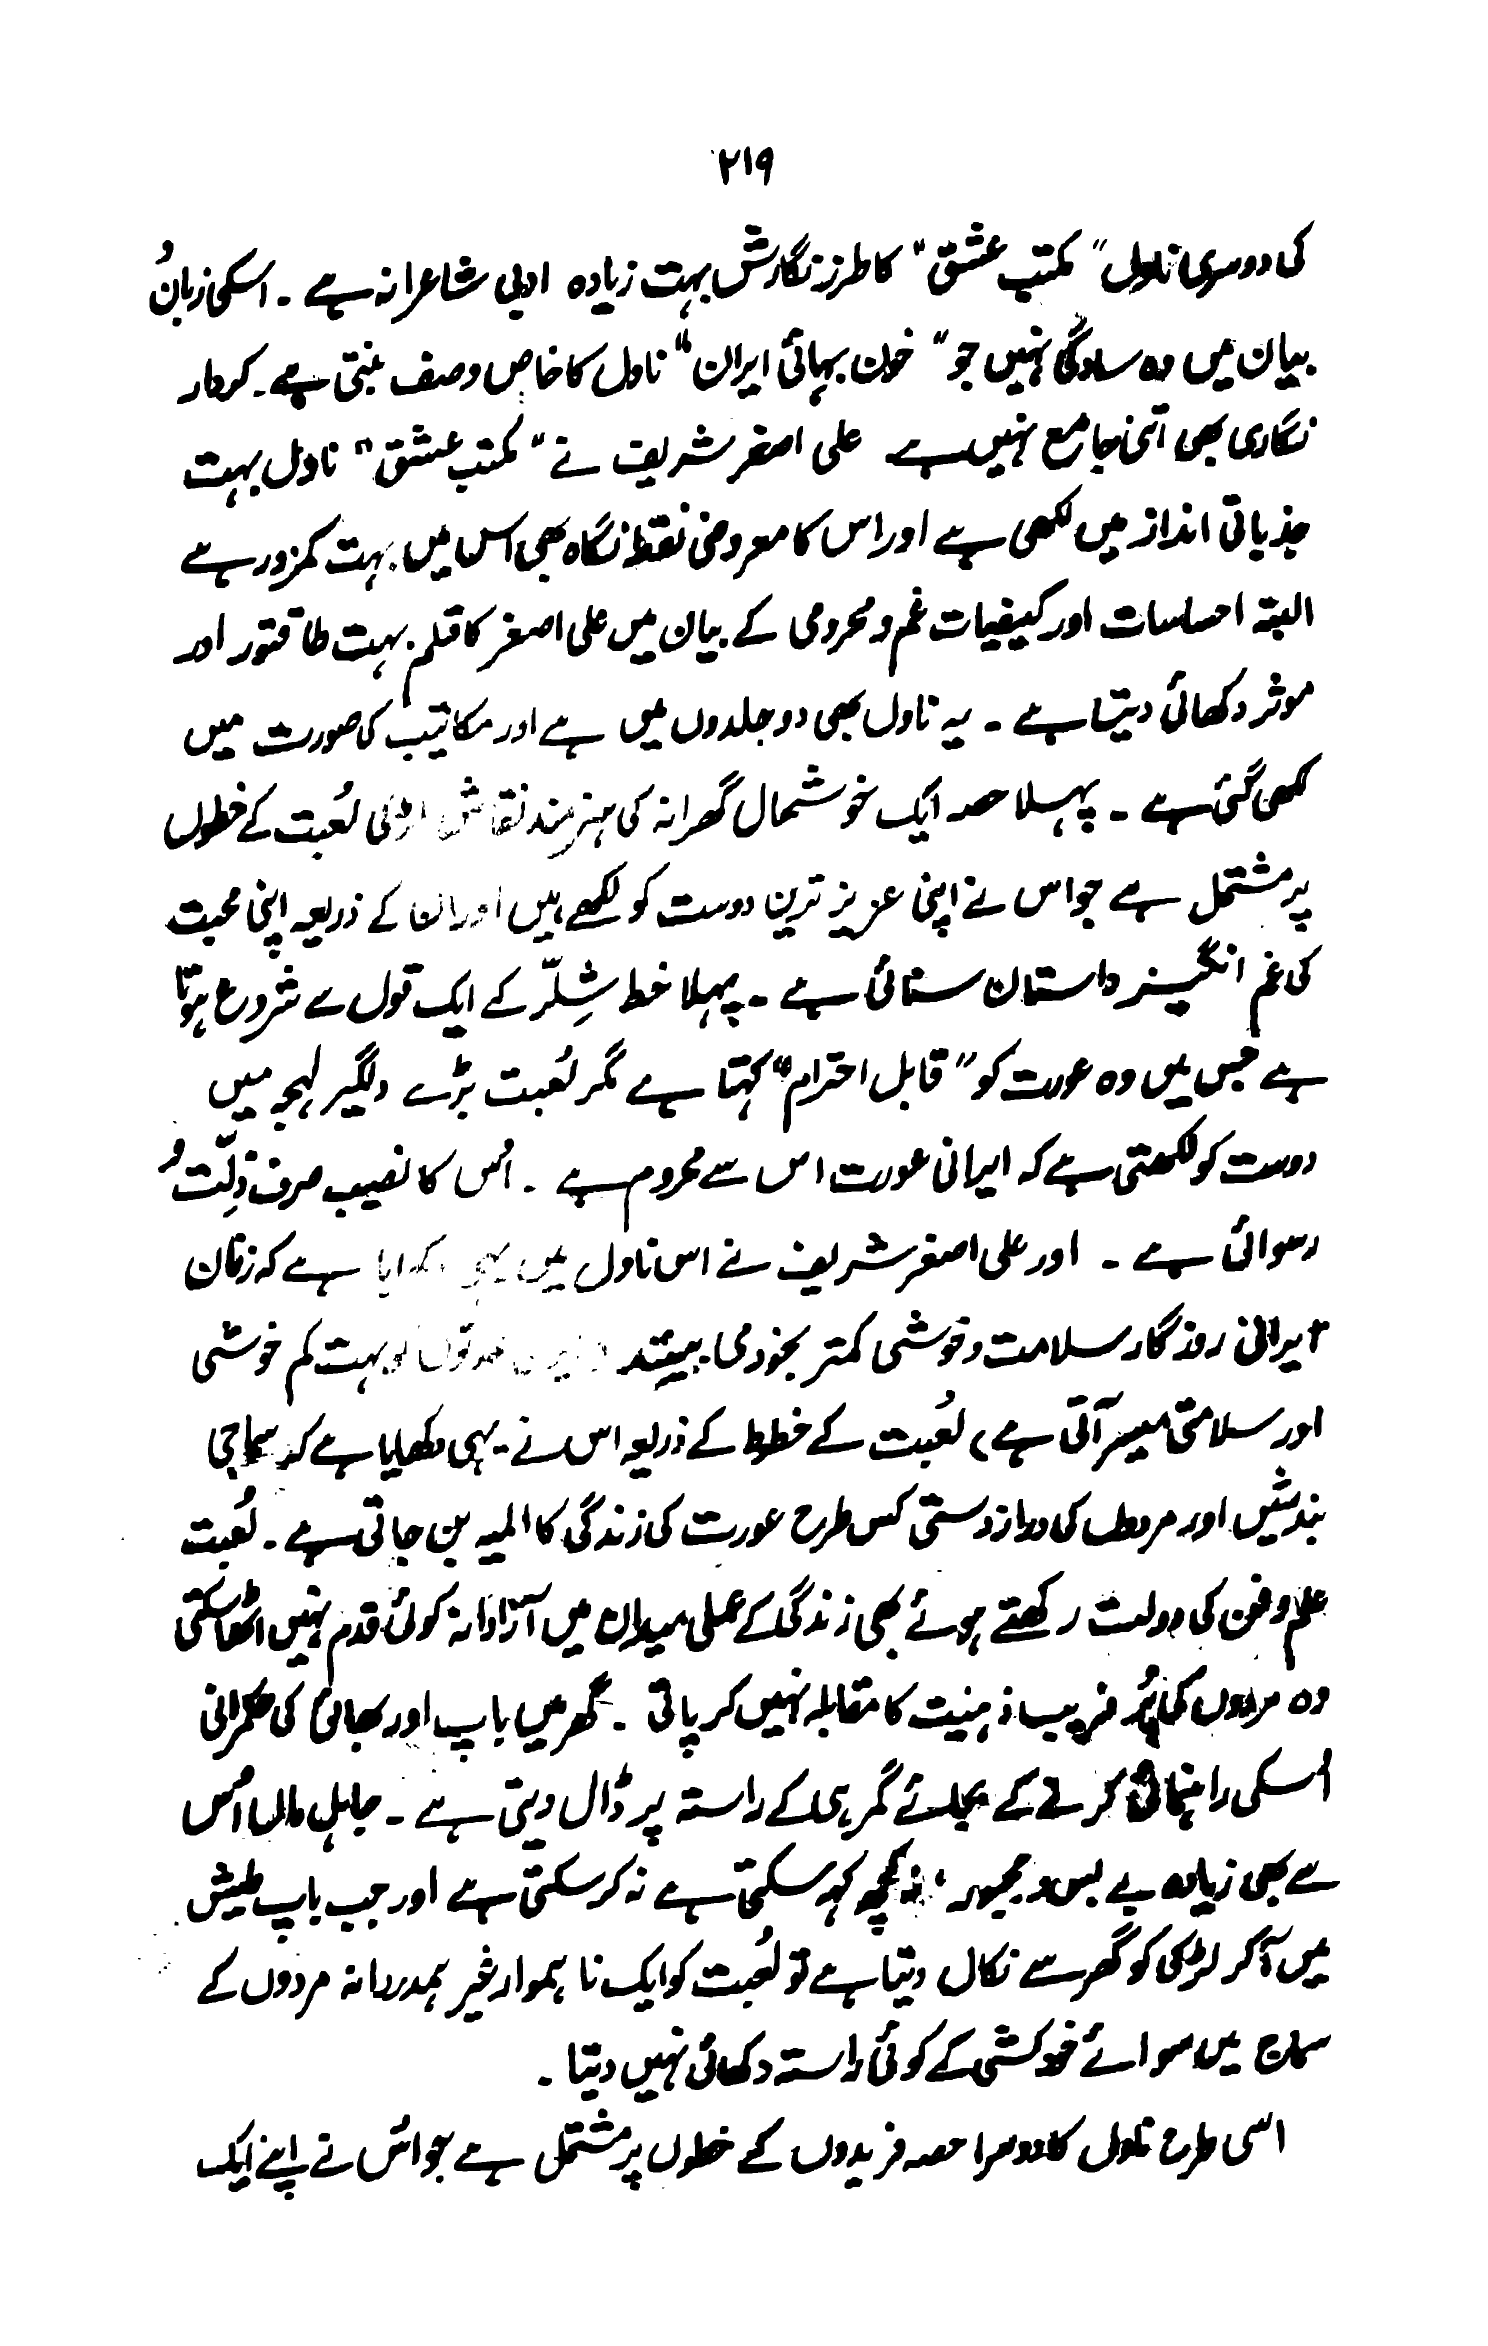 ۲۱۹
کی دوسری ناول "مکتب عشق" کا طرز نگارش بہت زیادہ ادبی شاعرانہ ہے ۔ اسکی زبان و
بیان میں وہ سادگی نہیں جو "خون بہائی ایران" ناول کا خاص وصف بنتی ہے۔ کردار
نگاری بھی اتنی جامع نہیں ہے علی اصغر شریف نے "مکتب عشق" ناول بہت
جذباتی انداز میں لکھی ہے اور اس کا معروضی نقطۂ نگاہ بھی اس میں بہت کمزور ہے
البتہ احساسات اور کیفیات غم و محرومی کے بیان میں علی اصغر کا قلم بہت طاقتور اور
موثر دکھائی دیتا ہے ۔ یہ ناول بھی دو جلدوں میں ہے اور مکاتیب کی صورت میں
لکھی گئی ہے ۔ پہلا حصہ ایک خوشحال گھرانہ کی ہنرمند نقاش لڑکی لُعبت کے خطوں
پر مشتمل ہے جو اس نے اپنی عزیز ترین دوست کو لکھے ہیں اور ان کے ذریعہ اپنی محبت
کی غم انگیز داستان سنائی ہے ۔ پہلا خط شِلّر کے ایک قول سے شروع ہوتا
ہے جس میں وہ عورت کو "قابل احترام" کہتا ہے مگر لُعبت بڑے دلگیر لہجہ میں
دوست کو لکھتی ہے کہ ایرانی عورت اس سے محروم ہے ۔ اُس کا نصیب صرف ذِلّت و
رسوائی ہے ۔ اور علی اصغر شریف نے اس ناول میں یہی دکھایا ہے کہ زنان
ایرانی روزگار سلامت و خوشی کمتر بخود می بینند عورتوں کو بہت کم خوشی
اور سلامتی میسر آتی ہے) لُعبت کے خطط کے ذریعہ اس نے یہی دکھلایا ہے کہ سماجی
بندشیں اور مردوں کی دراز دستی کس طرح عورت کی زندگی کا المیہ بن جاتی ہے ۔ لُعبت
علم و فن کی دولت رکھتے ہوئے بھی زندگی کے عملی میدان میں آزادانہ کوئی قدم نہیں اٹھا سکتی
وہ مردوں کی پُر فریب ذہنیت کا مقابلہ نہیں کر پاتی ۔ گھر میں باپ اور بھائی کی حکمرانی
اُسکی راہنمائی کرنے کے بجائے گمرہی کے راستہ پر ڈال دیتی ہے ۔ جاہل ماں اُس
سے بھی زیادہ بے بس و مجبور، نہ کچھ کہہ سکتی ہے نہ کر سکتی ہے اور جب باپ طیش
میں آ کر لڑکی کو گھر سے نکال دیتا ہے تو لُعبت کو ایک ناہموار غیر ہمدردانہ مردوں کے
سماج میں سوائے خودکشی کے کوئی راستہ دکھائی نہیں دیتا ۔
اسی طرح ناول کا دوسرا حصہ فریدوں کے خطوں پر مشتمل ہے جو اُس نے اپنے ایک